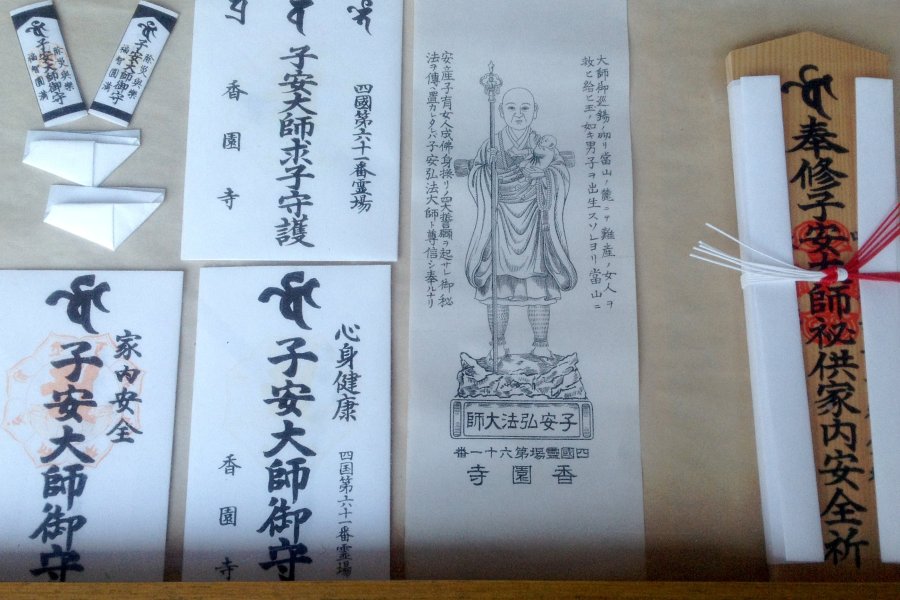 除災與樂
子安大師御守
福智圓満
除災與樂
子安大師御守
福智圓満
四國第六十一番霊場
子安大師求子守護
香園寺
家内安全
子安大師御守
心身健康
四国第六十一番霊場
子安大師御守
香園寺
大師御巡錫ノ砌リ當山ノ麓ニテ難産ノ女人ヲ
救ヒ給ヒ玉ノ如キ男子ヲ出生スソレヨリ當山ニ
安産子育女人成佛身換リノ四大誓願ヲ起サレ御秘
法ヲ傳ヘ置カレタレバ子安弘法大師ト尊信シ奉ルナリ
子安弘法大師
四國霊場第六十一番
香園寺
奉修子安大師秘供家内安全祈